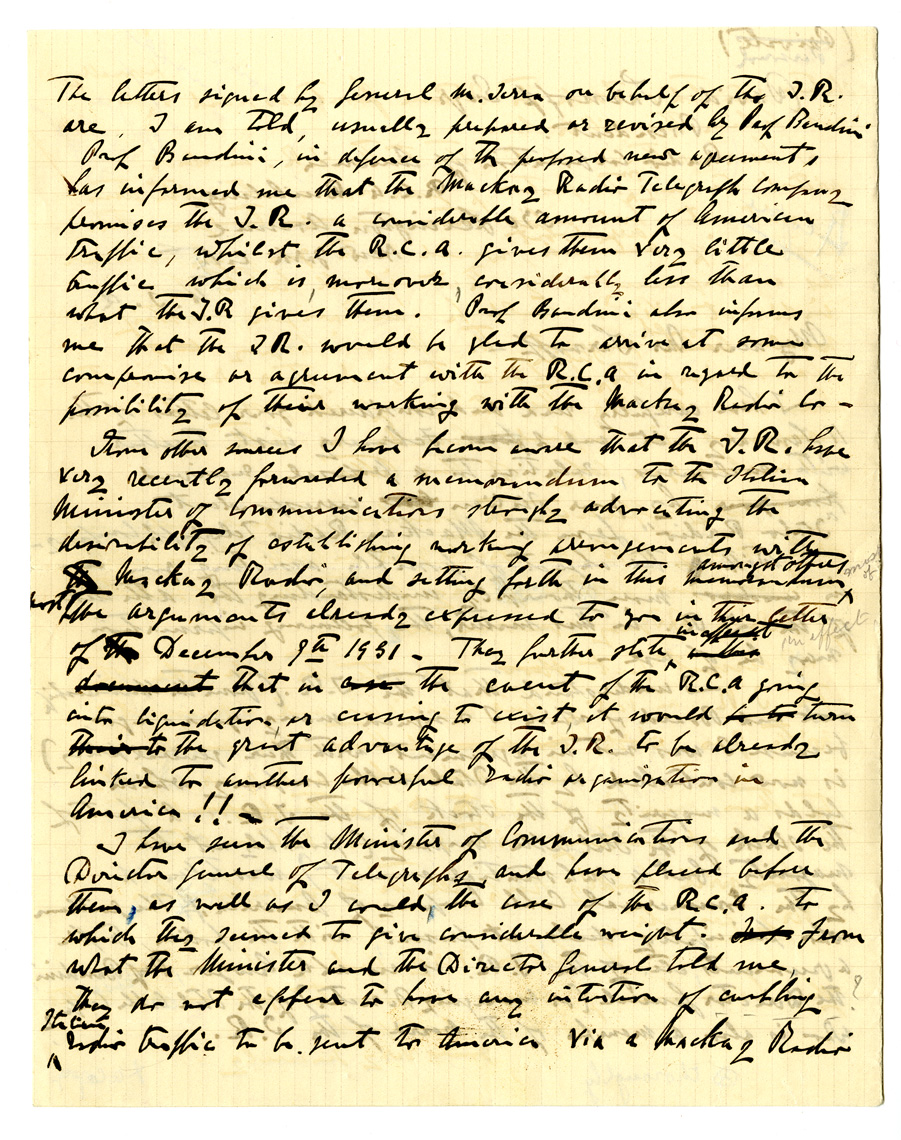 The letters signed by General M. Serra on behalf of the I.R.
are, I am told, usually prepared or revised by Prof Bandini
Prof Bandini, in defence of the proposed new agreements
has informed me that the Mackay Radio Telegraph Company
promises the I.R. a considerable amount of American
traffic, whilst the R.C.A. gives them very little
traffic which is, moreover, considerably less than
what the I.R gives them. Prof Bandini also informs
me that the I.R. would be glad to arrive at some
compromise or agreement with the R.C.A in regard to the
possibility of their working with the Mackay Radio Co -
From other sources I have become aware that the I.R. have
very recently forwarded a memorandum to the Italian
Minister of Communications strongly advocating the
desirability of establishing working arrangements with
Mackay Radio, and setting forth in this memorandum
amongst others
most of
the arguments already expressed to you in their letter
of December 9th 1931 - They further state in effect
in effect
document that in case the event of the R.C.A going
into liquidation, or ceasing to exist, it would be to turn
their to the great advantage of the I.R. to be already
linked to another powerful radio organization in
America!! -
I have seen the Minister of Communications and the
Director General of Telegraphs, and have placed before
them, as well as I could, the case of the R.C.A. to
which they seemed to give considerable weight. From
what the Minister and the Director General told me,
they do not appear to have any intention of enabling ?
Italian
radio traffic to be sent to America via a Mackay Radio